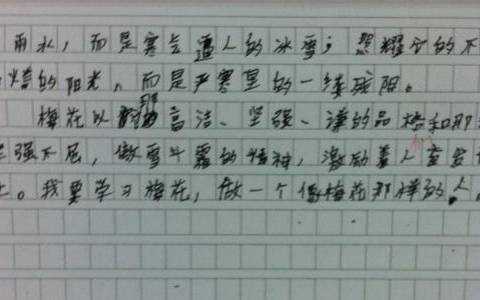 雨水，而是寒气逼人的冰雪；照耀它的不
的阳光，而是严寒里的一缕残阳。
梅花以那高洁、坚强、谦的品格和那
强不屈，傲雪斗霜的精神，激励着人
。我要学习梅花，做一个像梅花那样的人。